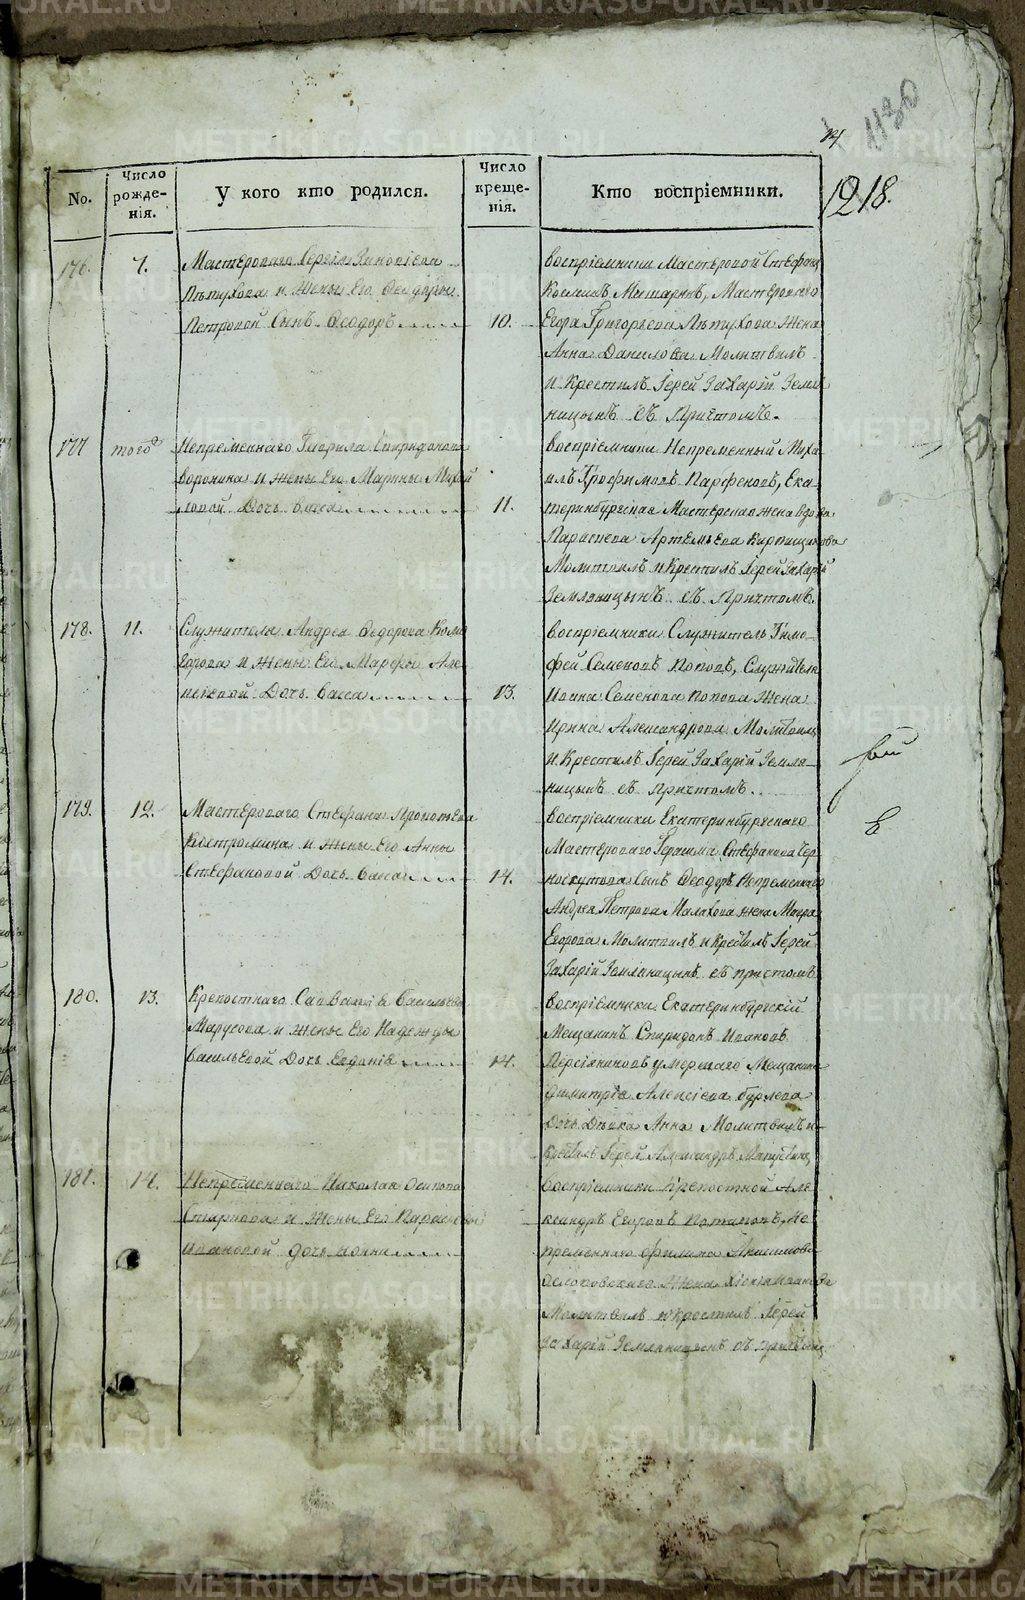 1130
1218.
No.
Число рожденія.
У кого кто родился.
Число крещенія.
Кто воспріемники.
176.
7.
Мастероваго Сергія Зиновіева
Пѣтухова и Жены Его Ѳеодоры
Петровой Сынъ Ѳеодоръ
10.
воспріемники Мастеровой Стефанъ
Косминъ Мешаринъ, Мастероваго
Егора Григорьева Пѣтухова Жена
Анна Данилова Молитвилъ
и Крестилъ Іерей Захарій Земля
ницынъ съ Причтомъ.
177
того
Непременнаго Гаврила Спиридонова
воронина и жены Его Марѳы Михай
ловой Дочь васса
11.
воспріемники Непременный Миха
илъ Трофимовъ Парфеновъ, Ека
теринбургская Мастерская жена вдова
Параскева Артемьева
Молитвилъ и Крестилъ Іерей Захарій
Земляницынъ съ Причтомъ.
178.
11.
Служителя Андрея Ѳедорова
и Жены Его Марфы Але
ксѣевой Дочь Васса
13.
воспріемники Служитель Тимо
фей Семеновъ Поповъ, Служителя
Иоанна Семенова Попова Жена
Ирина Александрова Молитвилъ
и Крестилъ Іерей Захарій Земля
ницынъ съ Причтомъ.
179.
12.
Мастероваго Стефана Прокопьева
Костромина и Жены Его Анны
Стефановой Дочь Васса
14.
воспріемники Екатеринбургскаго
Мастероваго Герасима Стефанова Чер
носкутова Сынъ Ѳеодоръ Непременнаго
Андрея Петрова Малахова жена Мавра
Егорова Молитвилъ и Крестилъ Іерей
Захарій Земляницынъ съ причтомъ
180.
13.
Крепостнаго Савватія Васильева
Марусова и жены Его Надежды
васильевой Дочь Евдокія
14.
воспріемники Екатеринбургскій
Мещанинъ Спиридонъ Ивановъ
Персіяниновъ умершаго Мещанина
Димитрія Алексіева бурлева
Дочь Девка Анна Молитвилъ и
Крестилъ Іерей Александръ
181.
14.
Непременнаго Николая Осипова
Старкова и Жены Его Параскевы
Ивановой дочь иоанна
воспріемники Крепостной Але
ксандръ Егоровъ Потаповъ, Не
пременнаго Филипа Анисимова
Жена
Молитвилъ и крестилъ Іерей
Захарій Земляницынъ съ причтомъ
METRIKI.GASO-URAL.RU